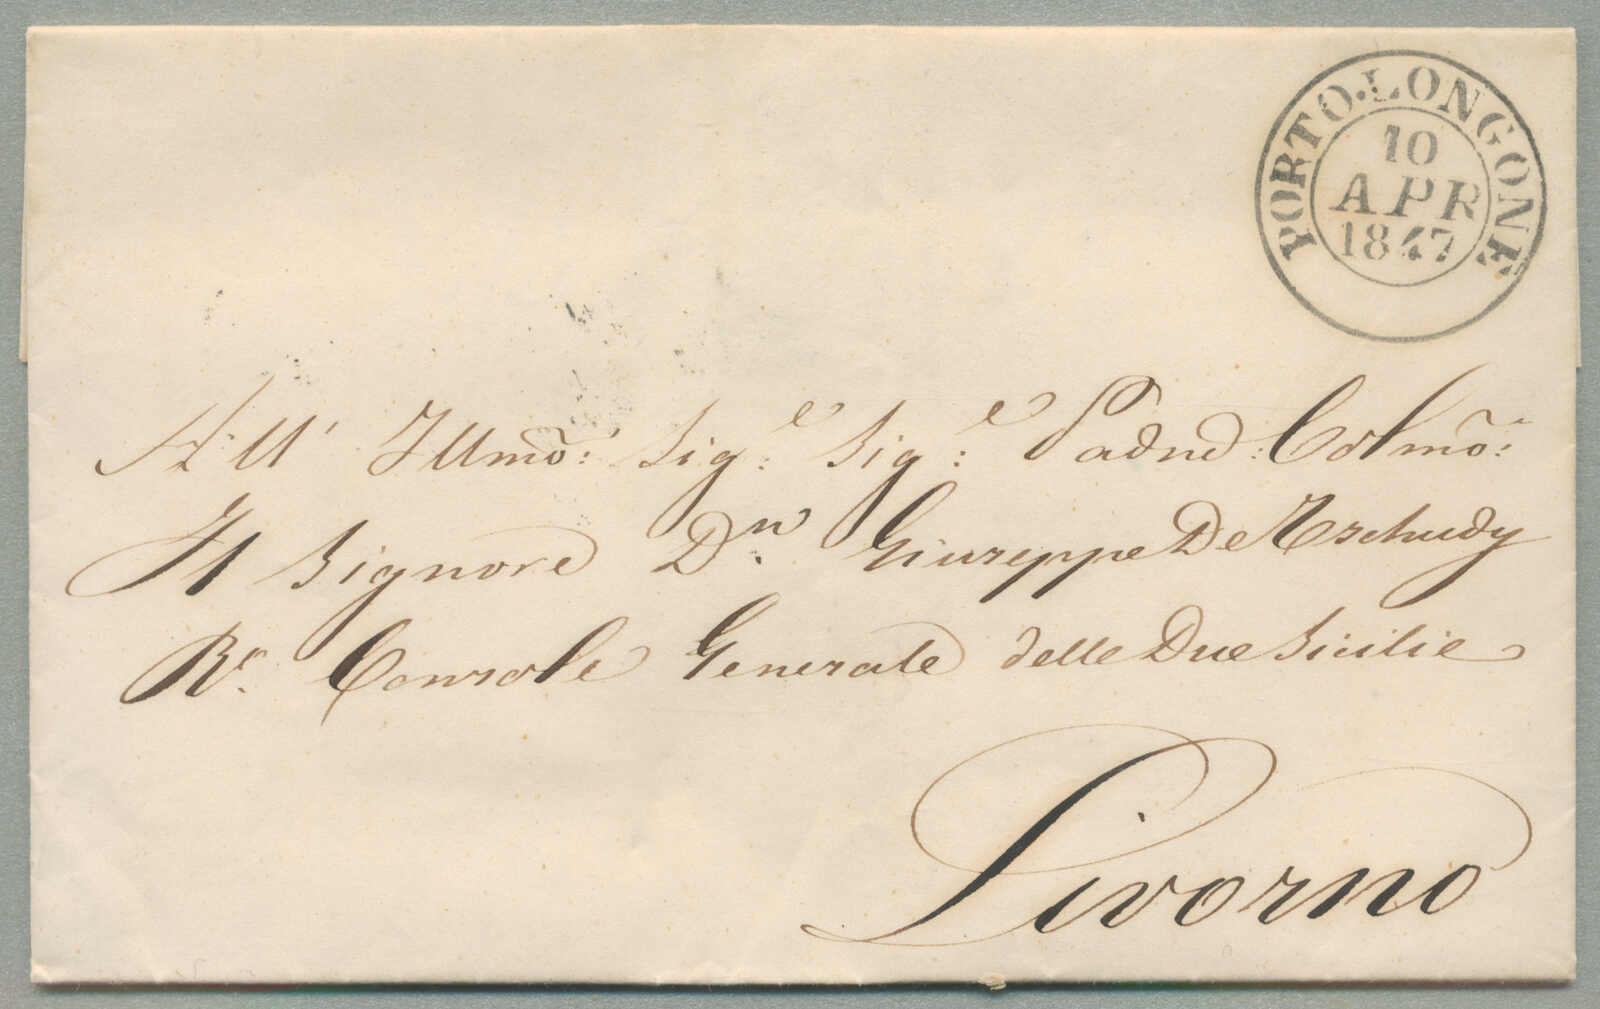 PORTO.LONGONE
10
APR
1847
All' Illmo: Sig:e Sig:e Padne: Colmo:
Il Signore Dn. Giuseppe De Tschudy
Re. Console Generale delle Due Sicilie
Livorno